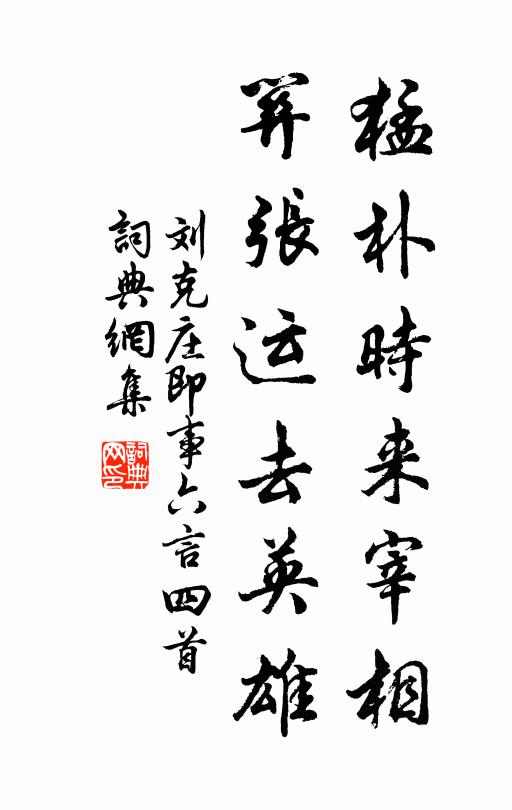 猛朴時来宰相
關張运去英雄
刘克庄即事六言四首
詞典網集
詞典网印